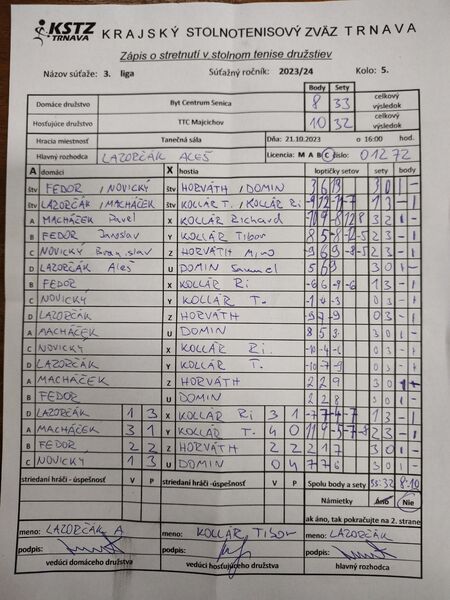 KSTZ TRNAVA KRAJSKÝ STOLNOTENISOVÝ ZVÄZ TRNAVA
Zápis o stretnutí v stolnom tenise družstiev
Názov súťaže: 3. liga Súťažný ročník: 2023/24 Kolo: 5.
Body Sety
Domáce družstvo Byt Centrum Senica 8 33 celkový výsledok
Hosťujúce družstvo TTC Majcichov 10 32 celkový výsledok
Hracia miestnosť Tanečná sála Dňa: 21.10.2023 o 16:00 hod.
Hlavný rozhodca LAZORČÁK ALEŠ Licencia: M A B C číslo: 01272
A domáci X hostia loptičky setov sety body
štv FEDOR / NOVICKÝ HORVÁTH / DOMIN 3 0 1 -
štv LAZORČÁK / MACHÁČEK KOLLÁR T. / KOLLÁR Ri 1 3 - 1
A MACHÁČEK Pavel X KOLLÁR Richard 2 3 - 1
B FEDOR Jaroslav Y KOLLÁR Tibor 8 5 -8 -2 -5 2 3 - 1
C NOVICKÝ Branislav Z HORVÁTH Miro -9 6 9 -8 -5 2 3 - 1
D LAZORČÁK Aleš U DOMIN Samuel 5 6 9 3 0 1 -
B FEDOR X KOLLÁR Ri -6 6 -9 -6 1 3 - 1
C NOVICKÝ Y KOLLÁR T. -1 -4 -3 0 3 - 1
D LAZORČÁK Z HORVÁTH -9 -7 -9 0 3 - 1
A MACHÁČEK U DOMIN 8 5 3 3 0 1 -
C NOVICKÝ X KOLLÁR Ri. -10 -4 -6 0 3 - 1
D LAZORČÁK Y KOLLÁR T. -10 -7 -9 0 3 - 1
A MACHÁČEK Z HORVÁTH 2 2 9 3 0 1 -
B FEDOR U DOMIN 2 2 8 3 0 1 -
D LAZORČÁK 1 3 X KOLLÁR Ri 3 1 -7 7 -4 -7 1 3 - 1
A MACHÁČEK 3 1 Y KOLLÁR T. 4 0 11 -9 -5 7 -8 2 3 - 1
B FEDOR 2 2 Z HORVÁTH 2 2 2 1 7 3 0 1 -
C NOVICKÝ 1 3 U DOMIN 0 4 7 7 6 3 0 1 -
striedaní hráči - úspešnosť V P striedaní hráči - úspešnosť V P Spolu body a sety 33:32 8-10
Námietky Áno Nie
ak áno, tak pokračujte na 2. strane
meno: LAZORČÁK A meno: KOLLÁR TIBOR meno: LAZORČÁK
podpis: podpis: podpis:
vedúci domáceho družstva vedúci hosťujúceho družstva hlavný rozhodca